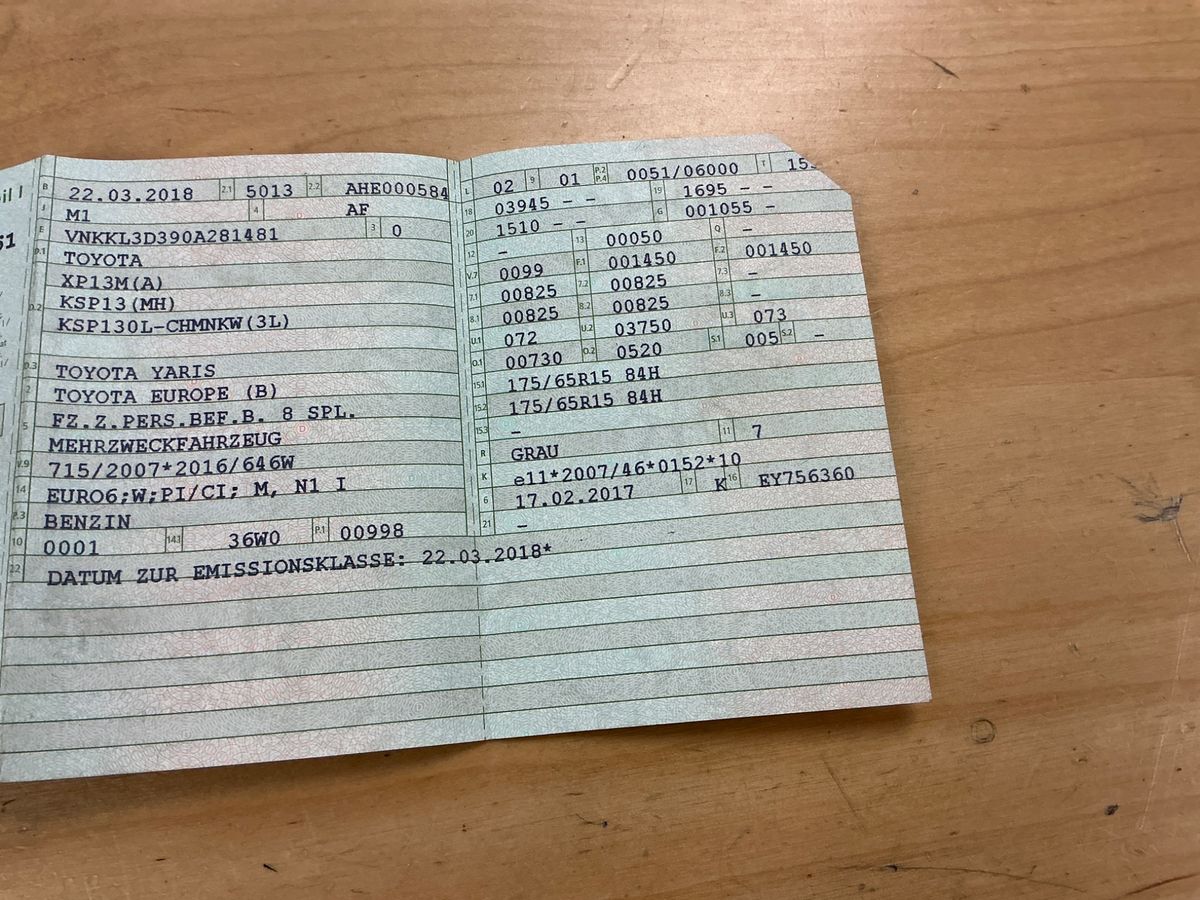 B 22.03.2018 2.1 5013 2.2 AHE000584
J M1 4 AF
E VNKKL3D390A281481 3 0
D.1 TOYOTA
XP13M(A)
D.2 KSP13(MH)
KSP130L-CHMNKW(3L)
D.3 TOYOTA YARIS
2 TOYOTA EUROPE (B)
5 FZ.Z.PERS.BEF.B. 8 SPL.
MEHRZWECKFAHRZEUG
V.9 715/2007*2016/646W
14 EURO6;W;PI/CI; M, N1 I
P.3 BENZIN
10 0001 14.1 36W0 P.1 00998
22 DATUM ZUR EMISSIONSKLASSE: 22.03.2018*
L 02 9 01 P.2 P.4 0051/06000 T
18 03945 - - 19 1695 - -
20 1510 - - G 001055 -
12 - 13 00050 Q -
V.7 0099 F.1 001450 F.2 001450
7.1 00825 7.2 00825 7.3 -
8.1 00825 8.2 00825 8.3 -
U.1 072 U.2 03750 U.3 073
O.1 00730 O.2 0520 S.1 005 S.2 -
15.1 175/65R15 84H
15.2 175/65R15 84H
15.3 -
R GRAU 11 7
K e11*2007/46*0152*10
6 17.02.2017 17 K 16 EY756360
21 -